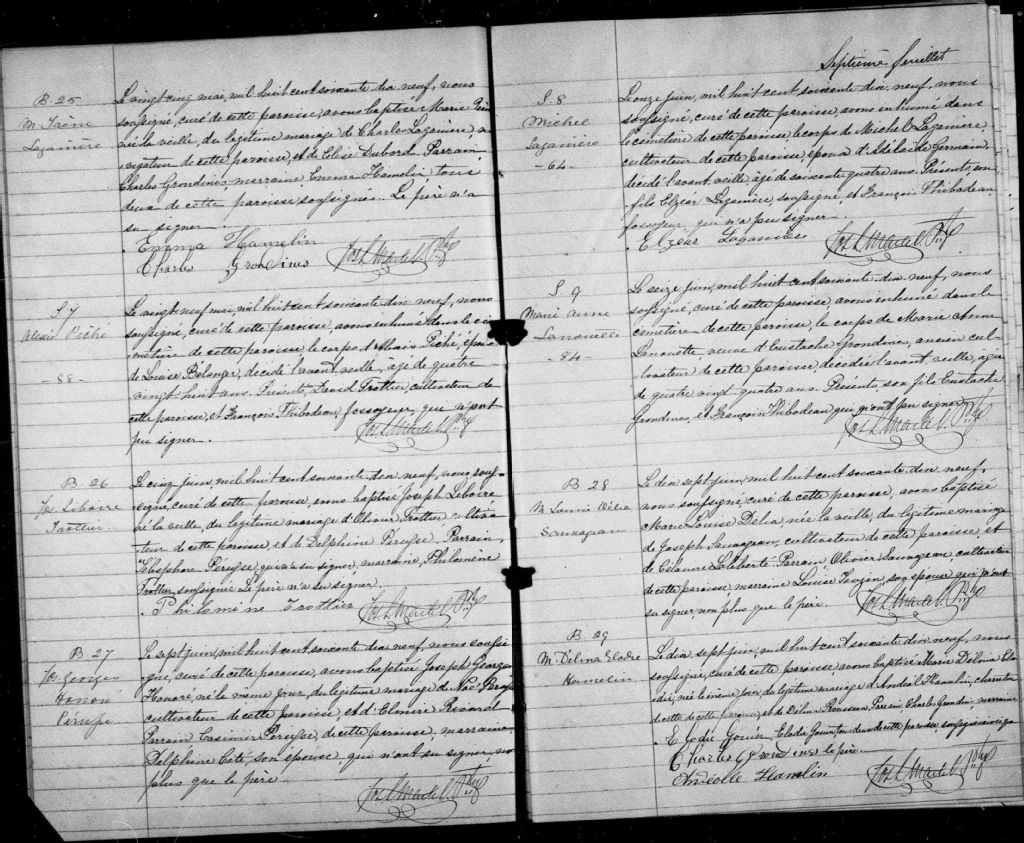 B. 25
M. Irène
Laganière
Le vingt cinq mai, mil huit cent soixante dix neuf, nous
soussigné, curé de cette paroisse, avons baptisé Marie Irè
née la veille, du légitime mariage de Charles Laganière, na
vigateur de cette paroisse, et de Elise Dubord. Parrain,
Charles Grondines marraine, Emma Hamelin tous
deux de cette paroisse soussignés. Le père n'a
su signer.
Emma Hamelin
Charles Grondines Jos L Martel Ptre
S 7
Alexis Piché
- 88 -
Le vingt neuf mai, mil huit cent soixante dix neuf, nous
soussigné, curé de cette paroisse, avons inhumé dans le ci
metière de cette paroisse le corps d'Alexis Piché, époux
de Louise Belanger, décédé l'avant veille, agé de quatre
vingt huit ans. Présents, David Trottier, cultivateur de
cette paroisse, et François Thibodeau, fossoyeur, qui n'ont
pu signer. Jos. L. Martel Ptre
B. 26
Jos Leboire
Trottier
Le cinq juin, mil huit cent soixante dix neuf, nous sous-
signé, curé de cette paroisse, avons baptisé Joseph Leboire
né la veille, du légitime mariage d'Olivier Trottier cultiva
teur de cette paroisse, et de Delphine Perusse. Parrain,
Telesphore Perusse, qui n'a su signer, marraine, Philomène
Trottier, soussignée. Le père n'a su signer.
Philomène Trottier Jos L Martel Ptre
B 27
Jos Georges
Honoré
Perusse
Le sept juin, mil huit cent soixante dix neuf, nous soussi
gné, curé de cette paroisse, avons baptisé Joseph Georges
Honoré, né le même jour, du légitime mariage de Noé Perusse
cultivateur de cette paroisse, et d'Elmire Rivard
Parrain Casimir Perusse, de cette paroisse, marraine,
Delphine Coté, son épouse qui n'ont su signer, no
plus que le père. Jos L Martel Ptre
Septième feuillet
S 8
Michel
Laganière
- 64
Le onze juin, mil huit cent soixante dix neuf, nous
soussigné, curé de cette paroisse, avons inhumé dans
le cimetière de cette paroisse le corps de Michel Laganière,
cultivateur de cette paroisse, époux d'Adélaïde Germain,
décédé l'avant veille, âgé de soixante quatre ans. Présents, son
fils Elzear Laganière soussigné et François Thibodeau
fossoyeur qui n'a pu signer.
Elzear Laganière Jos. L. Martel Ptre
S 9
Marie Anne
Lanouette
- 84
Le seize juin, mil huit cent soixante dix neuf, nous
soussigné, curé de cette paroisse, avons inhumé dans le
cimetière de cette paroisse, le corps de Marie Anne
Lanouette veuve d'Eustache Grondines, ancien cul
tivateur de cette paroisse, décédée l'avant veille, agée
de quatre vingt quatre ans. Présents, son fils Eustache
Grondines, et François Thibodeau qui n'ont pu signer.
Jos L. Martel Ptre
B 28
M. Louise Délia
Sauvageau
Le dix sept juin, mil huit cent soixante dix neuf,
nous soussigné, curé de cette paroisse, avons baptisé
Marie Louise Délia, née la veille, du légitime mariage
de Joseph Sauvageau, cultivateur de cette paroisse, et
de Célanire Laliberté. Parrain Olivier Sauvageau, cultivateur
de cette paroisse, marraine Louise son épouse qui n'ont
su signer, non plus que le père. Jos L Martel Ptre
B. 29
M. Délina Elodie
Hamelin
Le dix sept juin, mil huit cent soixante dix neuf, nous
soussigné, curé de cette paroisse, avons baptisé Marie Délina Elo
die, née le même jour, du légitime mariage d'André Hamelin, charretier
de cette de cette paroisse, et de Délina Rousseau, Parrain, Charles Grondin, marraine
Elodie Gouin tous deux de cette paroisse, soussignés ainsi que
Elodie Gouin
Charles Grondines le père.
Hamlin Jos L Martel Ptre